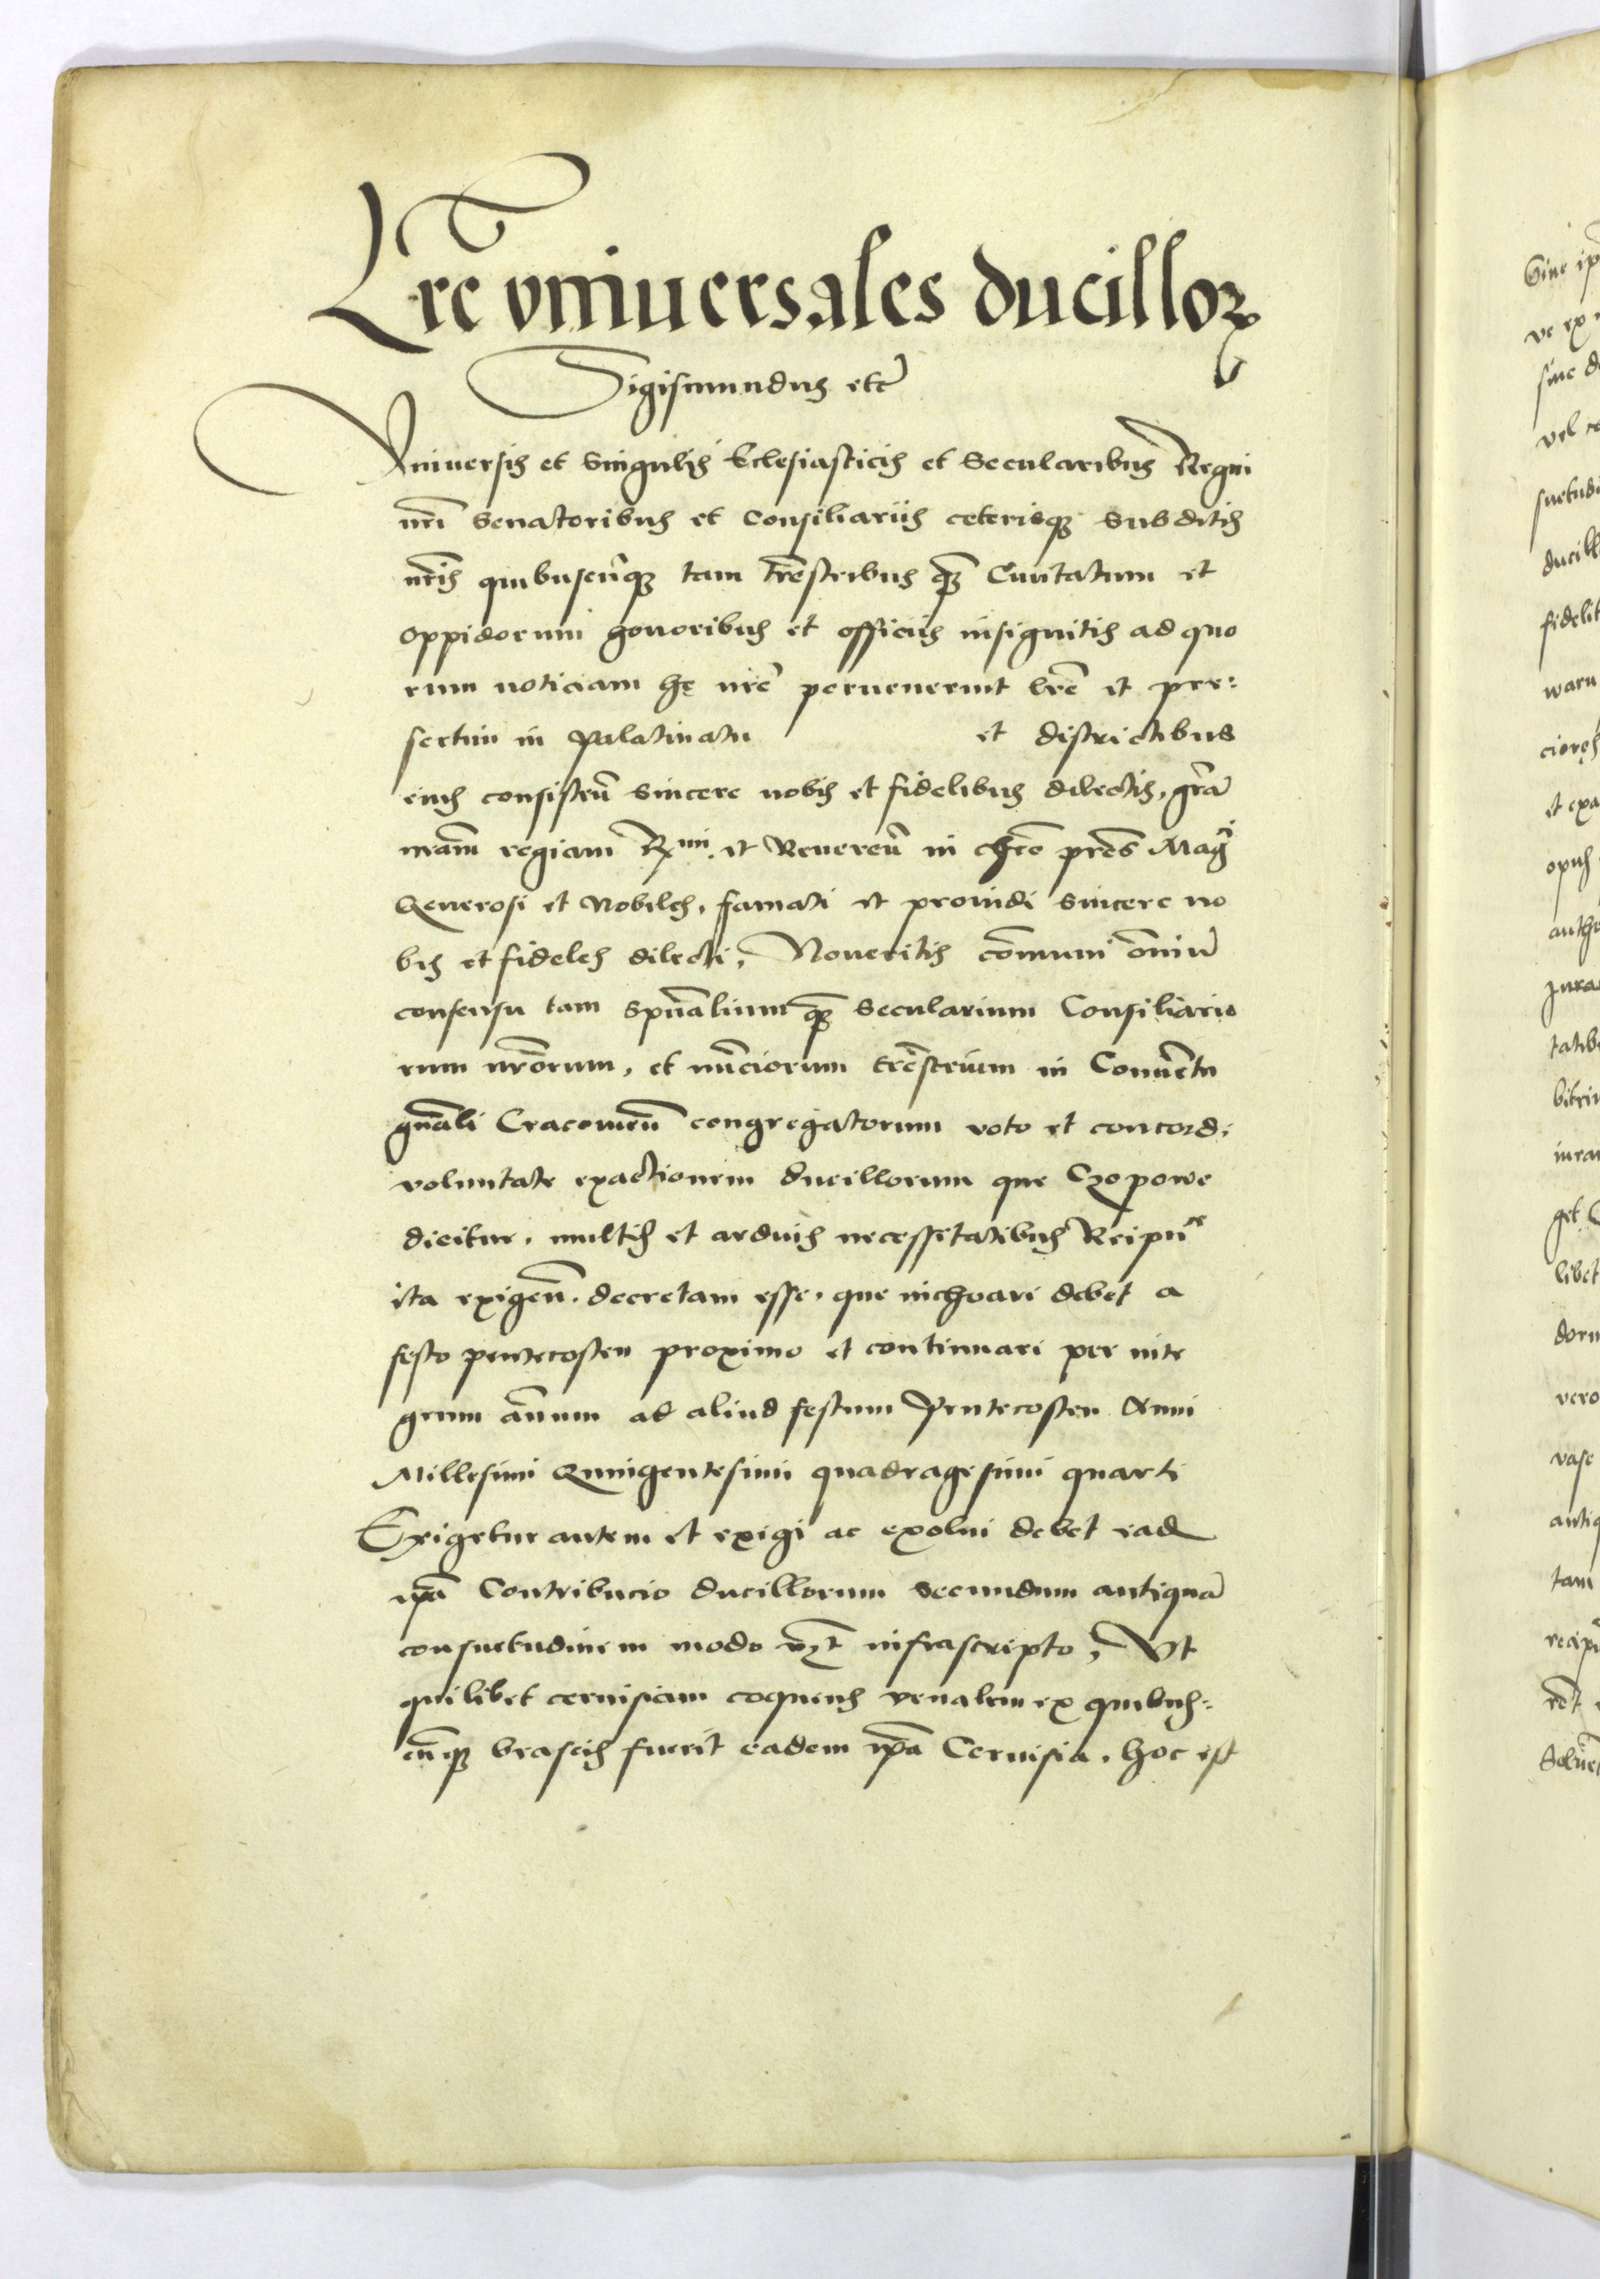 Lr̃e vniuersales ducilloꝝ
Sigismundus etc̃
Vniuersis et singulis Eclesiasticis et Secularibus Regni
nr̃i Senatoribus et Consiliariis ceterisqꝫ subditis
nr̃is quibuscũqꝫ tam tr̃estribus qꝫ̃ Ciuitatum et
oppidorum honoribus et officiis insignitis ad quo
rum noticiam hę nr̃e peruenerint lr̃e et pre:
sertim in palatinatu et districtibus
eius consisteñ sincere nobis et fidelibus dilectis, gr̃am
nr̃am regiam Rᵐⁱ et Reuereñ in chr̃o pr̃es Magci
Generosi et Nobiles, famati et prouidi sincere no
bis et fideles dilecti, Noueritis cõmuni oĩum
consensu tam spũalium qꝫ̃ secularium Consiliario
rum nr̃orum, et nũciorum tr̃estrium in Conuẽtu
gñali Cracouieñ congregatorum voto et concordi
voluntate exactionem ducillorum que Czopowe
dicitur, multis et arduis necessitatibus Reipuᶜᵉ
ita exigeñ, decretam esse, que inchoari debet a
festo pentecosten proximo et continuari per inte
grum ãnum ad aliud festum Pentecosten Anni
Millesimi Quingentesimi quadragesimi quarti
Exigetur autem et exigi ac exolui debet ead
ip̃a Contribucio ducillorum secundum antiquã
consuetudinem modo vꝫt infrascripto, Vt
quilibet ceruisiam coquens venalem ex quibus:
cũqꝫ brasciis fuerit eadem ip̃a Ceruisia, hoc est